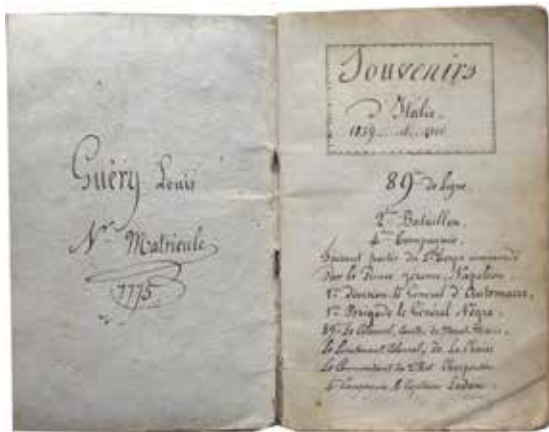 Guéry Louis
N° Matricule
7775
Souvenirs
d'Italie
1859
89e de ligne
2me Bataillon.
4me Compagnie.
faisant partie du 5e Corps commandé
par le Prince Jérome Napoléon.
1re division le Général d'Autemarre,
1re Brigade le Général Nègre
89e Le Colonel,
Le Lieutenant Colonel, de La
Le Commandant du Charpentier
la Compagnie le Capitaine